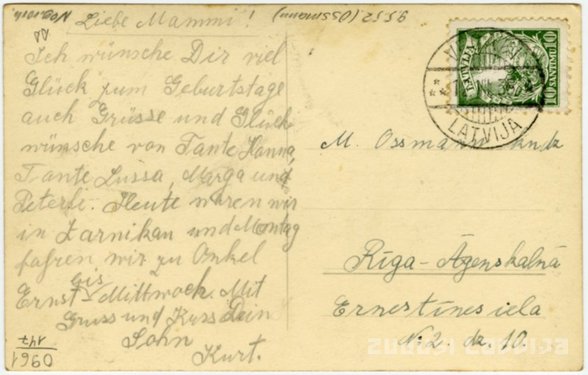 Liebe Mammi!
Ich wünsche Dir viel
Glück zum Geburtstage
auch Grüsse und Glück-
wünsche von Tante Hanna,
Tante Lussa, Marga und
Peterle. Heute waren wir
in Zarnikau und Montag
fahren wir zu Onkel
Ernst bis Mittwoch. Mit
Gruss und Kuss Dein
Sohn
Kurt.
9552 (Ossmann)
LATVIJA
10 SANTIMU 10
LATVIJA
M. Ossmann
Rīga-Āgenskalnā
Ernestīnes iela
No 2, dz. 10.
147
0961
zudusī latvija